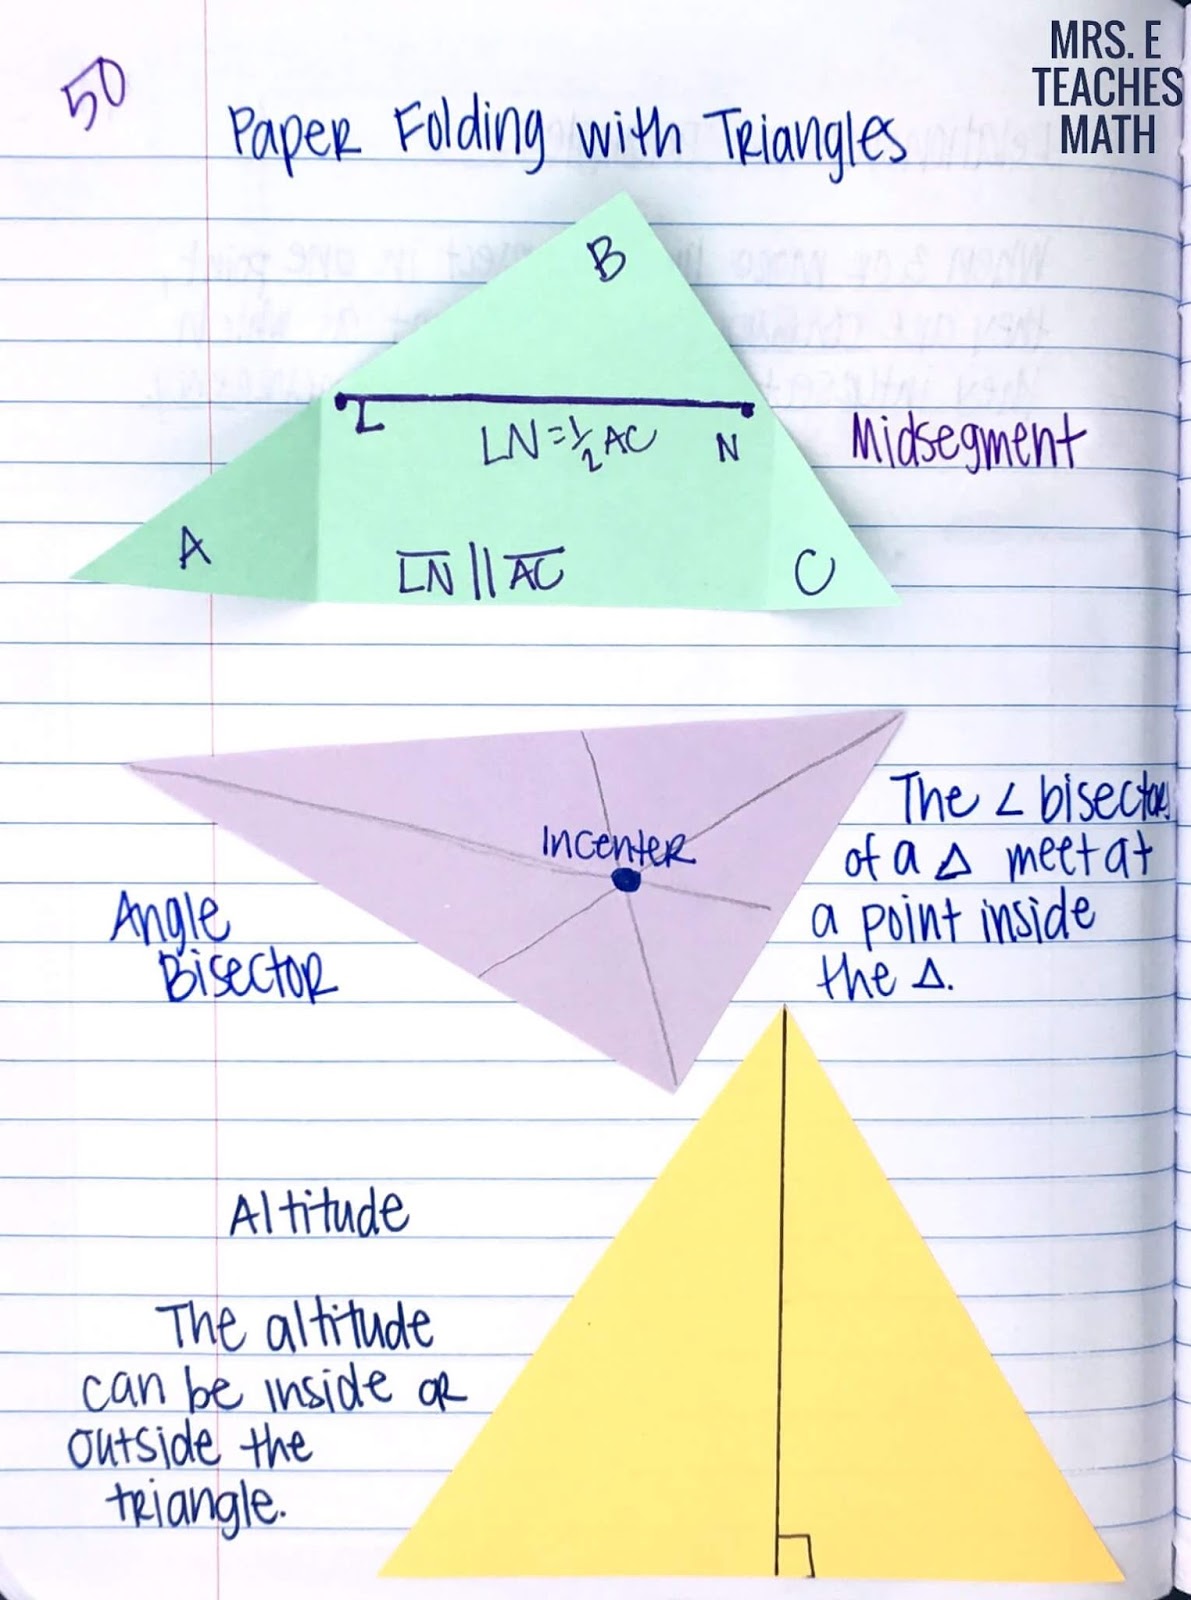 MRS. E
TEACHES
MATH
50
Paper Folding with Triangles
B
L
LN=½AC
N
Midsegment
A
L̅N̅ || A̅C̅
C
Incenter
The ∠ bisectors
of a △ meet at
a point inside
the △.
Angle
Bisector
Altitude
The altitude
can be inside or
outside the
triangle.